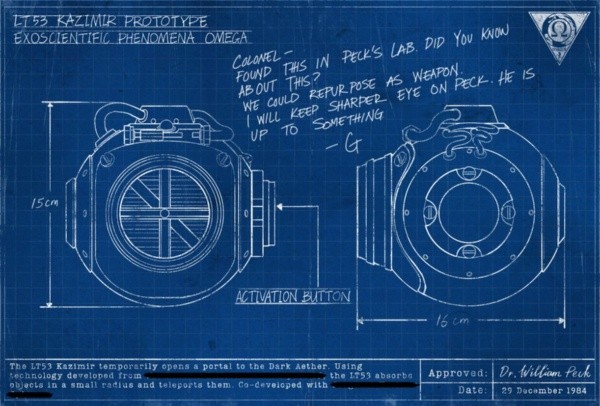 LT53 KAZIMIR PROTOTYPE
EXOSCIENTIFIC PHENOMENA OMEGA
Ω
COLONEL –
FOUND THIS IN PECK'S LAB. DID YOU KNOW
ABOUT THIS?
WE COULD REPURPOSE AS WEAPON.
I WILL KEEP SHARPER EYE ON PECK. HE IS
UP TO SOMETHING
– G
15cm
ACTIVATION BUTTON
16 cm
The LT53 Kazimir temporarily opens a portal to the Dark Aether. Using
technology developed from the LT53 absorbs
objects in a small radius and teleports them. Co-developed with
Approved: Dr. William Peck
Date: 29 December 1984